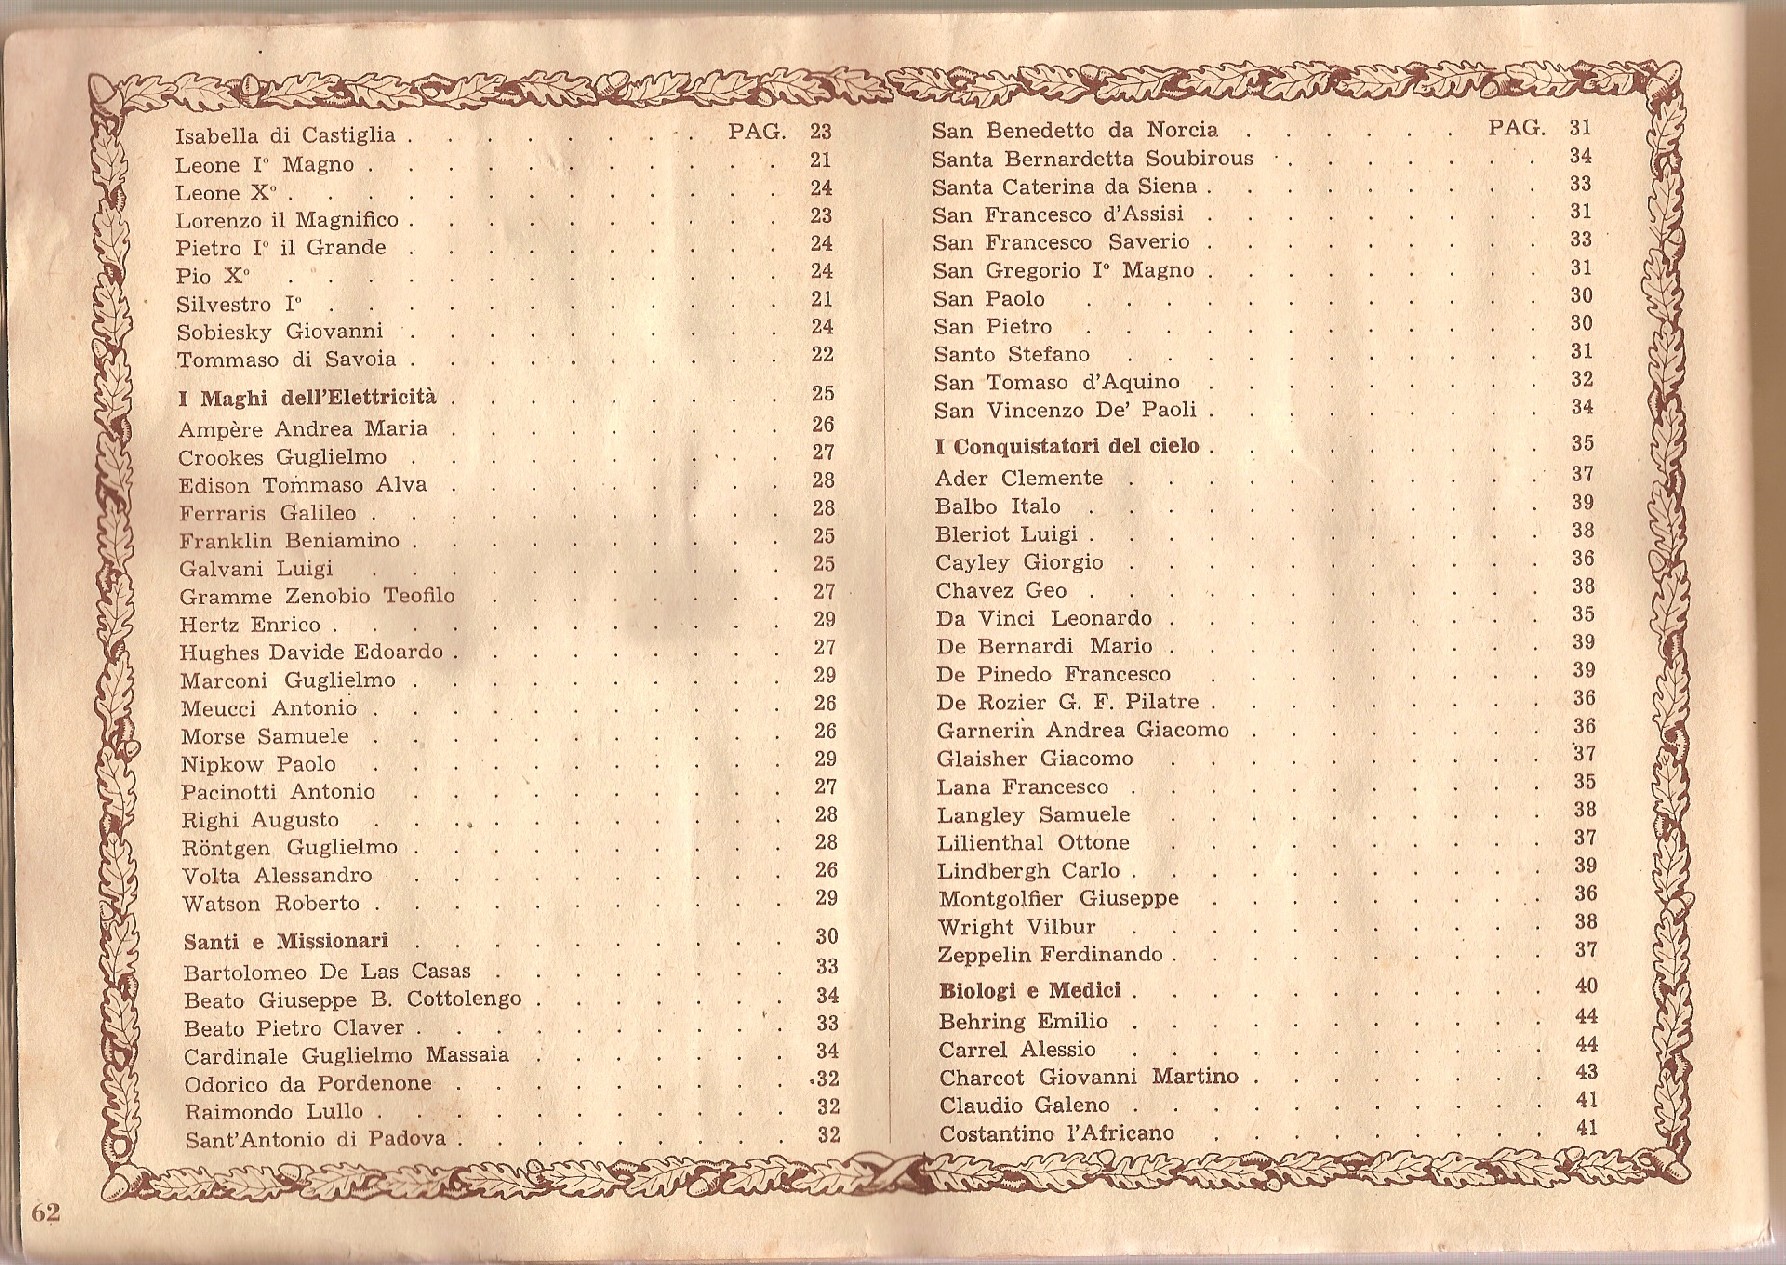 Isabella di Castiglia . . . . . . . . PAG. 23
Leone I° Magno . . . . . . . . . . . 21
Leone X° . . . . . . . . . . . . . 24
Lorenzo il Magnifico . . . . . . . . . . 23
Pietro I° il Grande . . . . . . . . . . 24
Pio X° . . . . . . . . . . . . . 24
Silvestro I° . . . . . . . . . . . . 21
Sobiesky Giovanni . . . . . . . . . . 24
Tommaso di Savoia . . . . . . . . . . 22
I Maghi dell'Elettricità . . . . . . . . . 25
Ampère Andrea Maria . . . . . . . . . 26
Crookes Guglielmo . . . . . . . . . . 27
Edison Tommaso Alva . . . . . . . . . 28
Ferraris Galileo . . . . . . . . . . . 28
Franklin Beniamino . . . . . . . . . . 25
Galvani Luigi . . . . . . . . . . . 25
Gramme Zenobio Teofilo . . . . . . . . 27
Hertz Enrico . . . . . . . . . . . . 29
Hughes Davide Edoardo . . . . . . . . . 27
Marconi Guglielmo . . . . . . . . . . 29
Meucci Antonio . . . . . . . . . . . 26
Morse Samuele . . . . . . . . . . . 26
Nipkow Paolo . . . . . . . . . . . 29
Pacinotti Antonio . . . . . . . . . . 27
Righi Augusto . . . . . . . . . . . 28
Röntgen Guglielmo . . . . . . . . . . 28
Volta Alessandro . . . . . . . . . . 26
Watson Roberto . . . . . . . . . . . 29
Santi e Missionari . . . . . . . . . . 30
Bartolomeo De Las Casas . . . . . . . . 33
Beato Giuseppe B. Cottolengo . . . . . . . 34
Beato Pietro Claver . . . . . . . . . . 33
Cardinale Guglielmo Massaia . . . . . . . 34
Odorico da Pordenone . . . . . . . . . 32
Raimondo Lullo . . . . . . . . . . . 32
Sant'Antonio di Padova . . . . . . . . . 32
San Benedetto da Norcia . . . . . . PAG. 31
Santa Bernardetta Soubirous . . . . . . . 34
Santa Caterina da Siena . . . . . . . . . 33
San Francesco d'Assisi . . . . . . . . . 31
San Francesco Saverio . . . . . . . . . 33
San Gregorio I° Magno . . . . . . . . . 31
San Paolo . . . . . . . . . . . . 30
San Pietro . . . . . . . . . . . . 30
Santo Stefano . . . . . . . . . . . 31
San Tomaso d'Aquino . . . . . . . . . 32
San Vincenzo De' Paoli . . . . . . . . . 34
I Conquistatori del cielo . . . . . . . . . 35
Ader Clemente . . . . . . . . . . . 37
Balbo Italo . . . . . . . . . . . . 39
Bleriot Luigi . . . . . . . . . . . . 38
Cayley Giorgio . . . . . . . . . . . 36
Chavez Geo . . . . . . . . . . . . 38
Da Vinci Leonardo . . . . . . . . . . 35
De Bernardi Mario . . . . . . . . . . 39
De Pinedo Francesco . . . . . . . . . 39
De Rozier G. F. Pilatre . . . . . . . . . 36
Garnerin Andrea Giacomo . . . . . . . . 36
Glaisher Giacomo . . . . . . . . . . 37
Lana Francesco . . . . . . . . . . . 35
Langley Samuele . . . . . . . . . . 38
Lilienthal Ottone . . . . . . . . . . 37
Lindbergh Carlo . . . . . . . . . . . 39
Montgolfier Giuseppe . . . . . . . . . 36
Wright Vilbur . . . . . . . . . . . 38
Zeppelin Ferdinando . . . . . . . . . . 37
Biologi e Medici . . . . . . . . . . . 40
Behring Emilio . . . . . . . . . . . 44
Carrel Alessio . . . . . . . . . . . 44
Charcot Giovanni Martino . . . . . . . . 43
Claudio Galeno . . . . . . . . . . . 41
Costantino l'Africano . . . . . . . . . 41
62